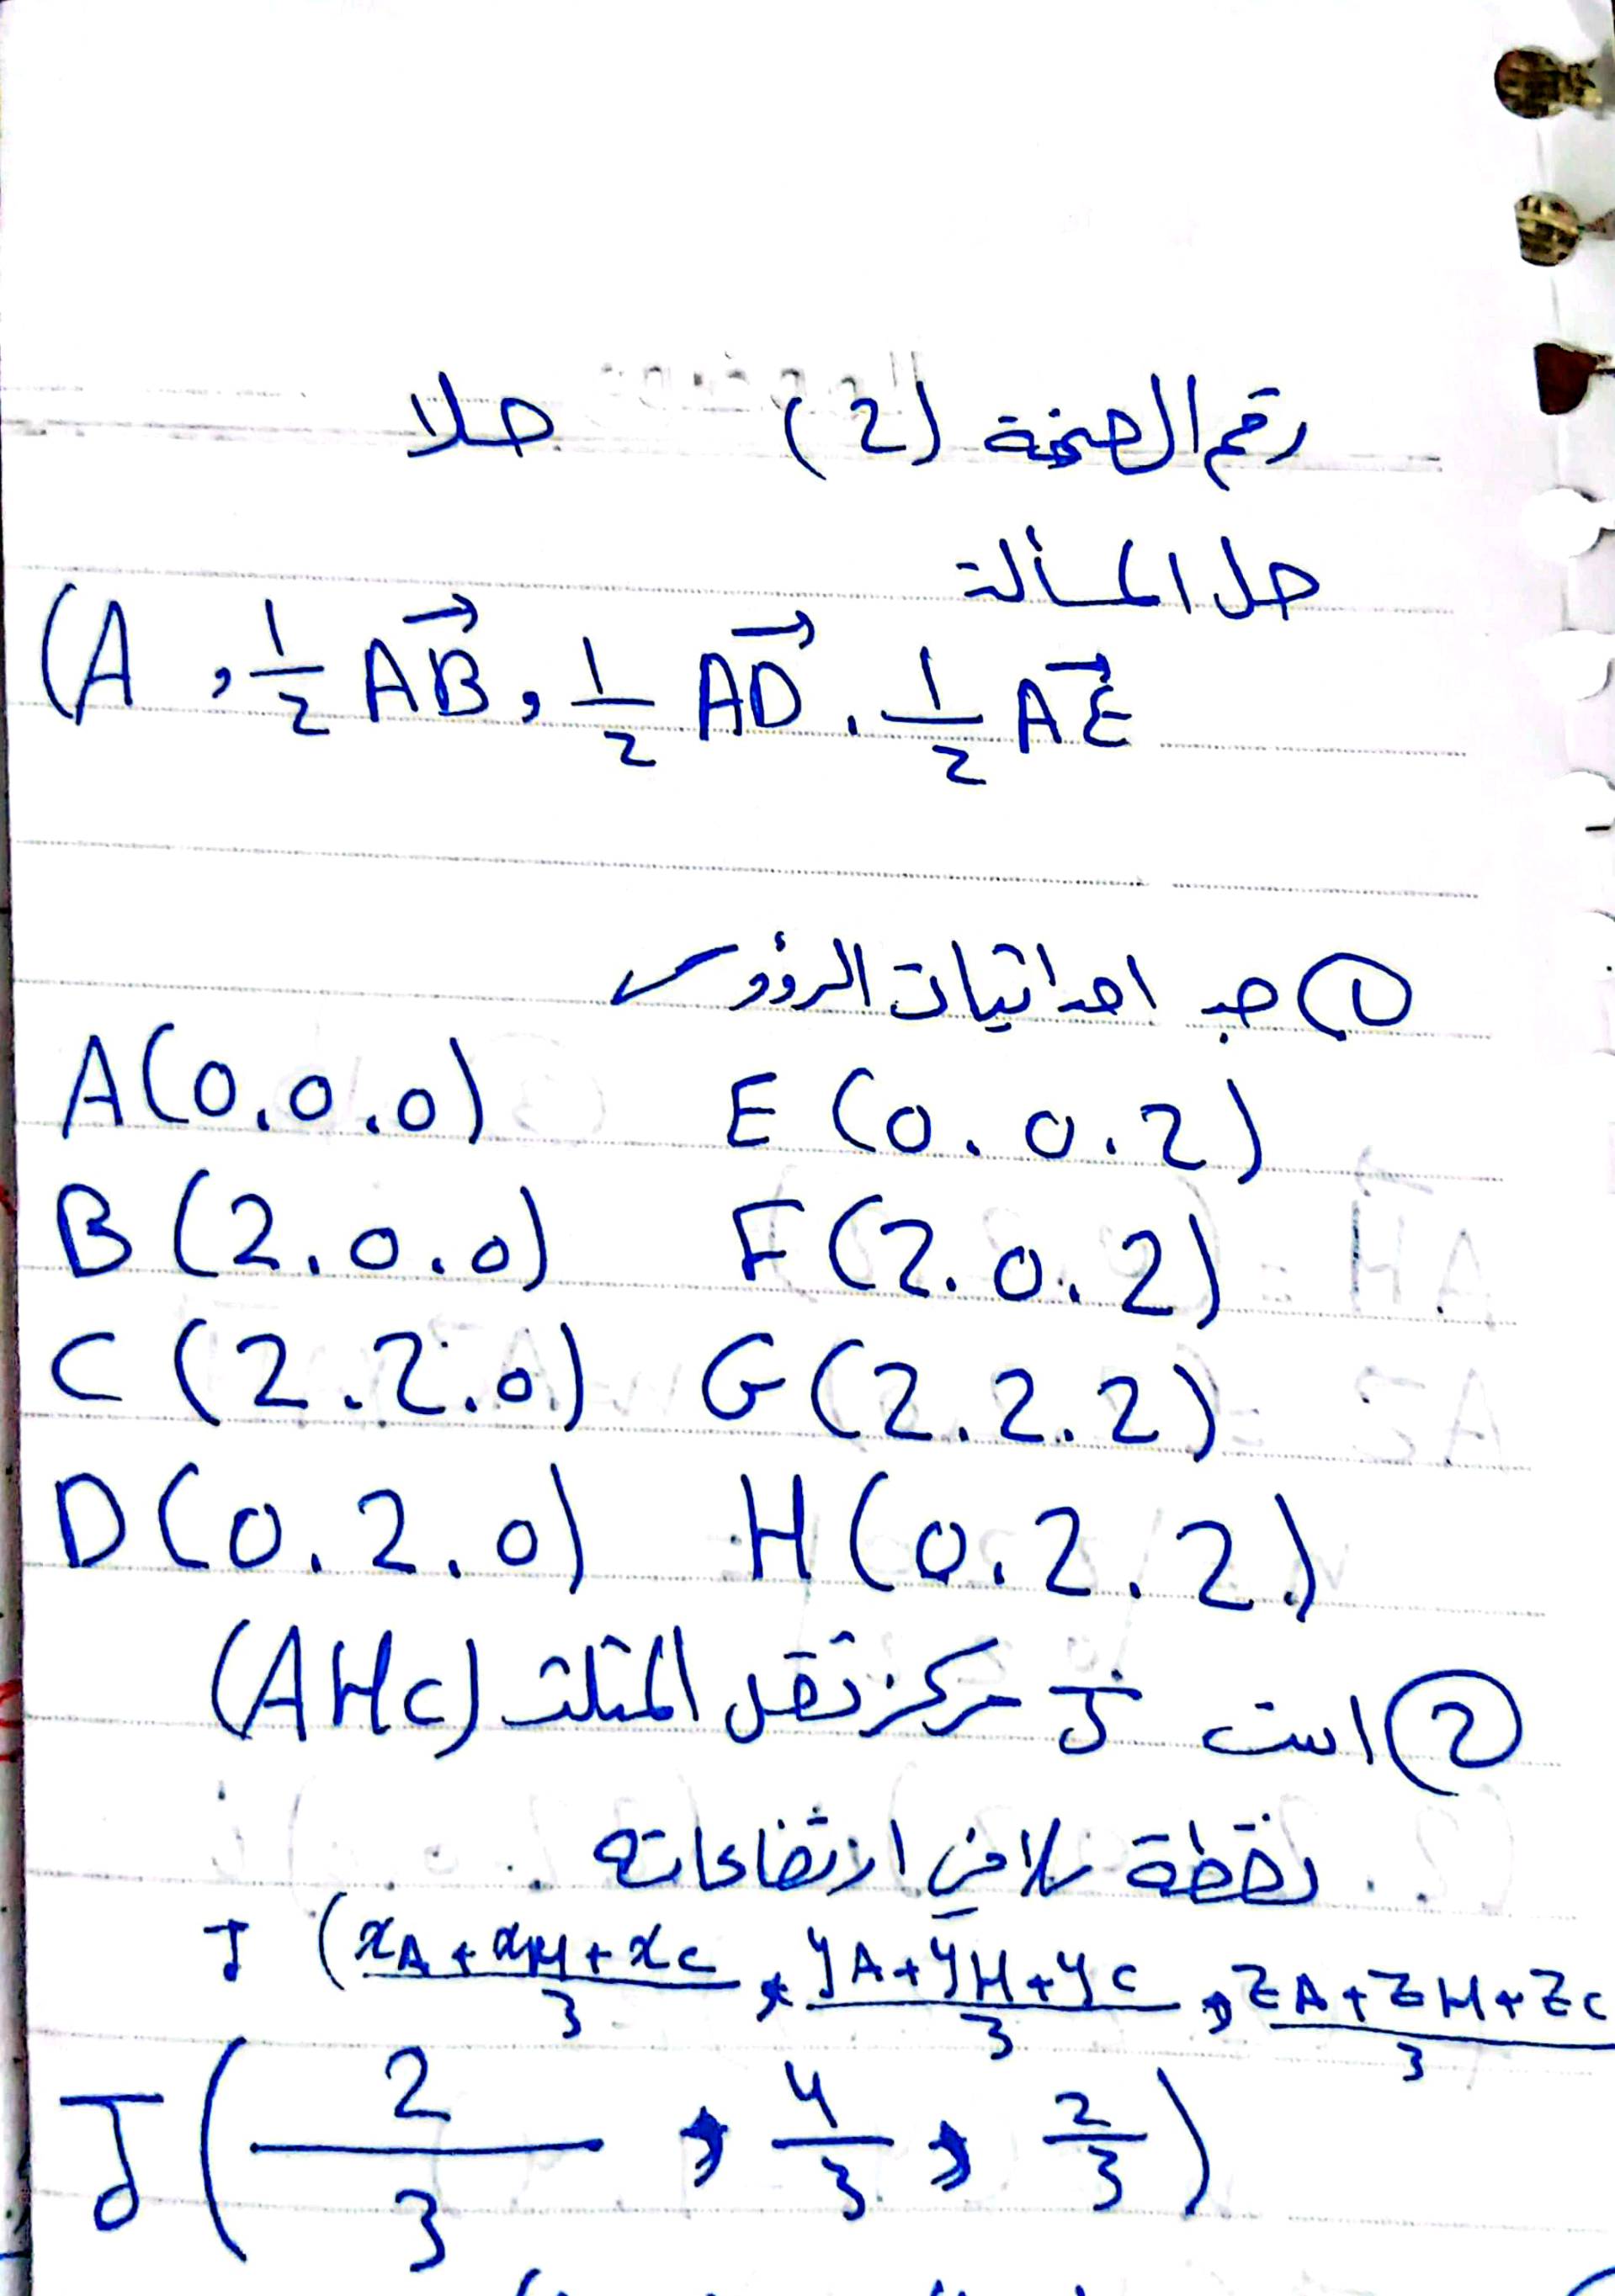 رقم الصفحة (2) حلا
حل المسألة
(A , 1/2 AB→ , 1/2 AD→ . 1/2 AE→
① جد احداثيات الرؤوس
A(0.0.0) E(0.0.2)
B(2.0.0) F(2.0.2)
C(2.2.0) G(2.2.2)
D(0.2.0) H(0.2.2)
② اثبت J مركز ثقل المثلث (AHC)
نقطة تلاقي ارتفاعاته
J (xA+xH+xC/3 , yA+yH+yC/3 , zA+zH+zC/3
J(2/3 , 4/3 , 2/3)